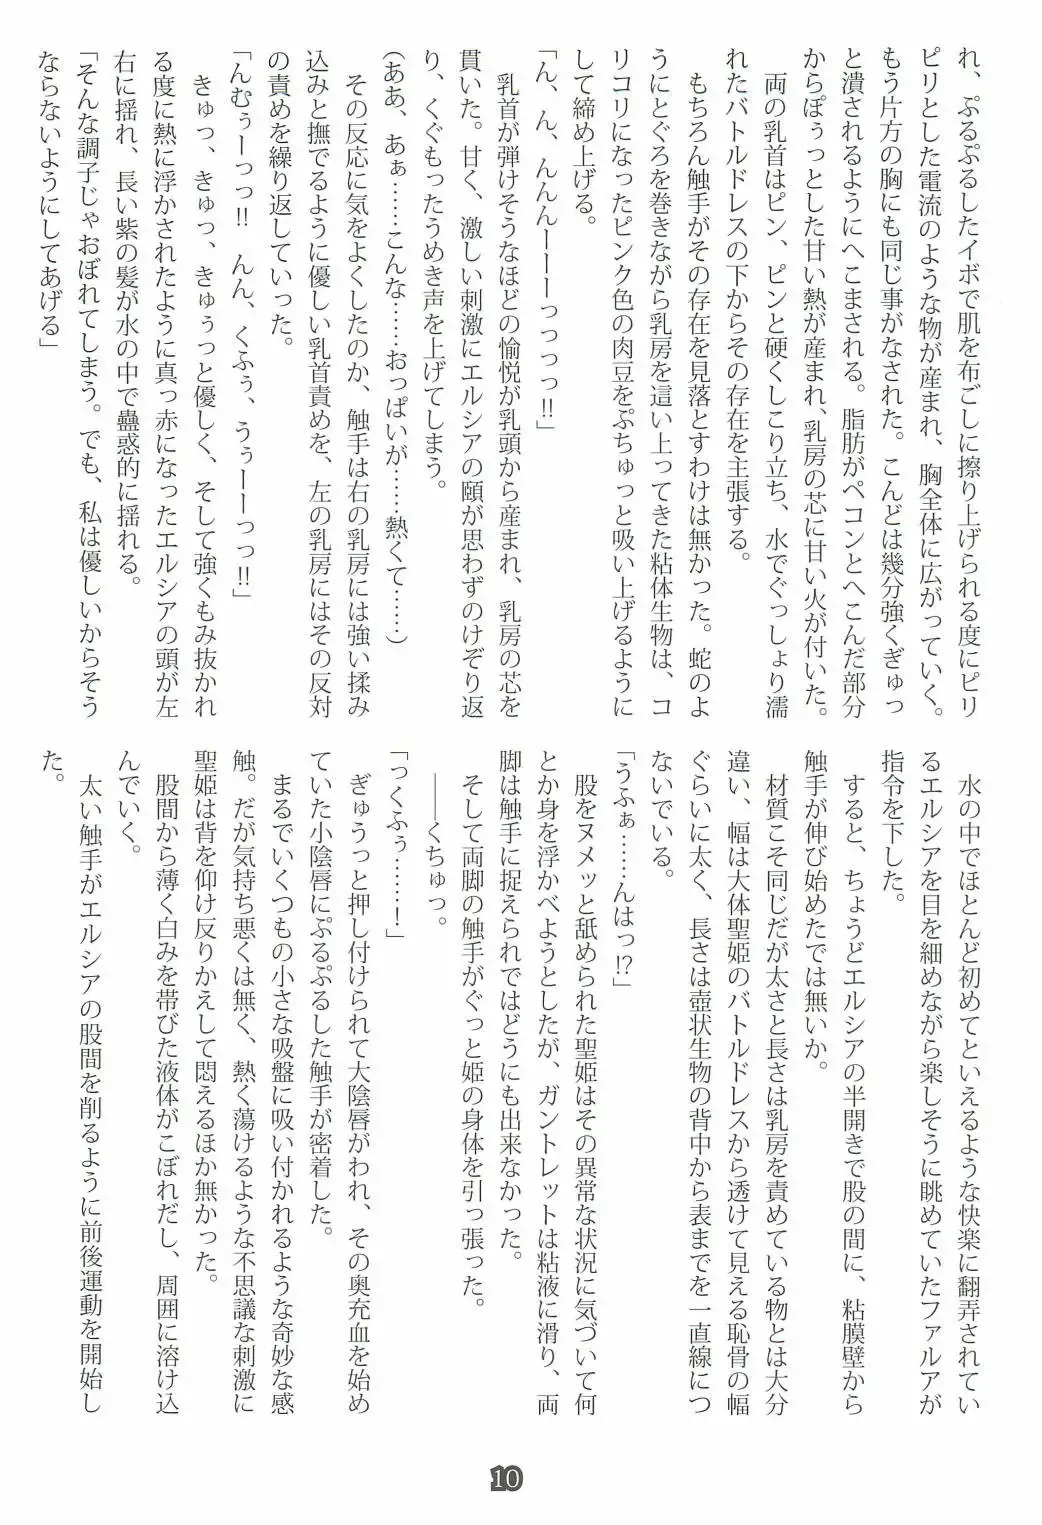 れ、ぷるぷるしたイボで肌を布ごしに擦り上げられる度にピリ
ピリとした電流のような物が産まれ、胸全体に広がっていく。
もう片方の胸にも同じ事がなされた。こんどは幾分強くぎゅっ
と潰されるようにへこまされる。脂肪がペコンとへこんだ部分
からぽぅっとした甘い熱が産まれ、乳房の芯に甘い火が付いた。
両の乳首はピン、ピンと硬くしこり立ち、水でぐっしょり濡
れたバトルドレスの下からその存在を主張する。
もちろん触手がその存在を見落とすわけは無かった。蛇のよ
うにとぐろを巻きながら乳房を這い上ってきた粘体生物は、コ
リコリになったピンク色の肉豆をぷちゅっと吸い上げるように
して締め上げる。
「ん、ん、んんんーーーっっっっ!!」
乳首が弾けそうなほどの愉悦が乳頭から産まれ、乳房の芯を
貫いた。甘く、激しい刺激にエルシアの頤が思わずのけぞり返
り、くぐもったうめき声を上げてしまう。
(ああ、あぁ……こんな……おっぱいが……熱くて……)
その反応に気をよくしたのか、触手は右の乳房には強い揉み
込みと撫でるように優しい乳首責めを、左の乳房にはその反対
の責めを繰り返していった。
「んむぅーっっ!! んん、くふぅ、うぅーーっっ!!」
きゅっ、きゅっ、きゅぅっと優しく、そして強くもみ抜かれ
る度に熱に浮かされたように真っ赤になったエルシアの頭が左
右に揺れ、長い紫の髪が水の中で蠱惑的に揺れる。
「そんな調子じゃおぼれてしまう。でも、私は優しいからそう
ならないようにしてあげる」
水の中でほとんど初めてといえるような快楽に翻弄されてい
るエルシアを目を細めながら楽しそうに眺めていたファルアが
指令を下した。
すると、ちょうどエルシアの半開きで股の間に、粘膜壁から
触手が伸び始めたでは無いか。
材質こそ同じだが太さと長さは乳房を責めている物とは大分
違い、幅は大体聖姫のバトルドレスから透けて見える恥骨の幅
ぐらいに太く、長さは壺状生物の背中から表までを一直線につ
ないでいる。
「うふぁ……んはっ!?」
股をヌメッと舐められた聖姫はその異常な状況に気づいて何
とか身を浮かべようとしたが、ガントレットは粘液に滑り、両
脚は触手に捉えられではどうにも出来なかった。
そして両脚の触手がぐっと姫の身体を引っ張った。
――くちゅっ。
「っくふぅ……！」
ぎゅうっと押し付けられて大陰唇がわれ、その奥充血を始め
ていた小陰唇にぷるぷるした触手が密着した。
まるでいくつもの小さな吸盤に吸い付かれるような奇妙な感
触。だが気持ち悪くは無く、熱く蕩けるような不思議な刺激に
聖姫は背を仰け反りかえして悶えるほか無かった。
股間から薄く白みを帯びた液体がこぼれだし、周囲に溶け込
んでいく。
太い触手がエルシアの股間を削るように前後運動を開始し
た。
10